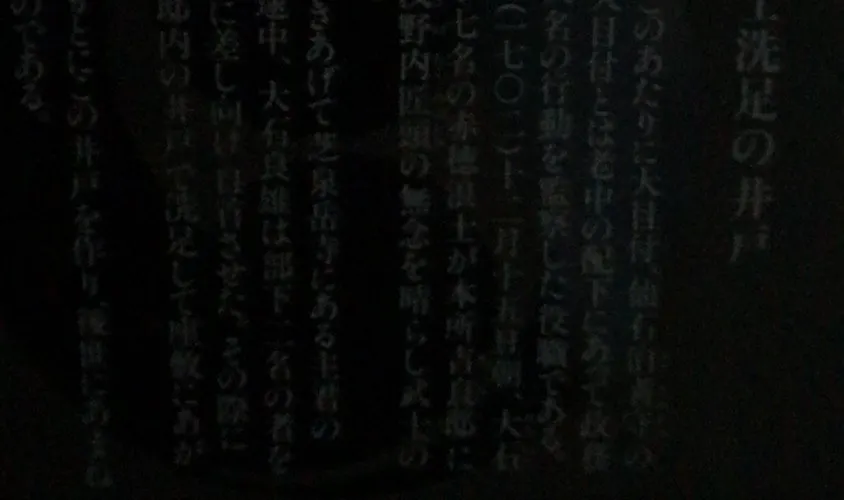 士洗足の井戸
このあたりに大目付、仙石伯耆守の
大目付とは老中の配下にあって政務
大名の行動を監察した役職である。
(一七〇二)十二月十五日朝、大石
七名の赤穂浪士が本所吉良邸に
浅野内匠頭の無念を晴らし武士の
きあげて芝泉岳寺にある主君の
途中、大石良雄は部下二名の者を
に差し向け自首させた。その際に
邸内の井戸で洗足して座敷にあが
もとにこの井戸を作り、後世にあ
のである。